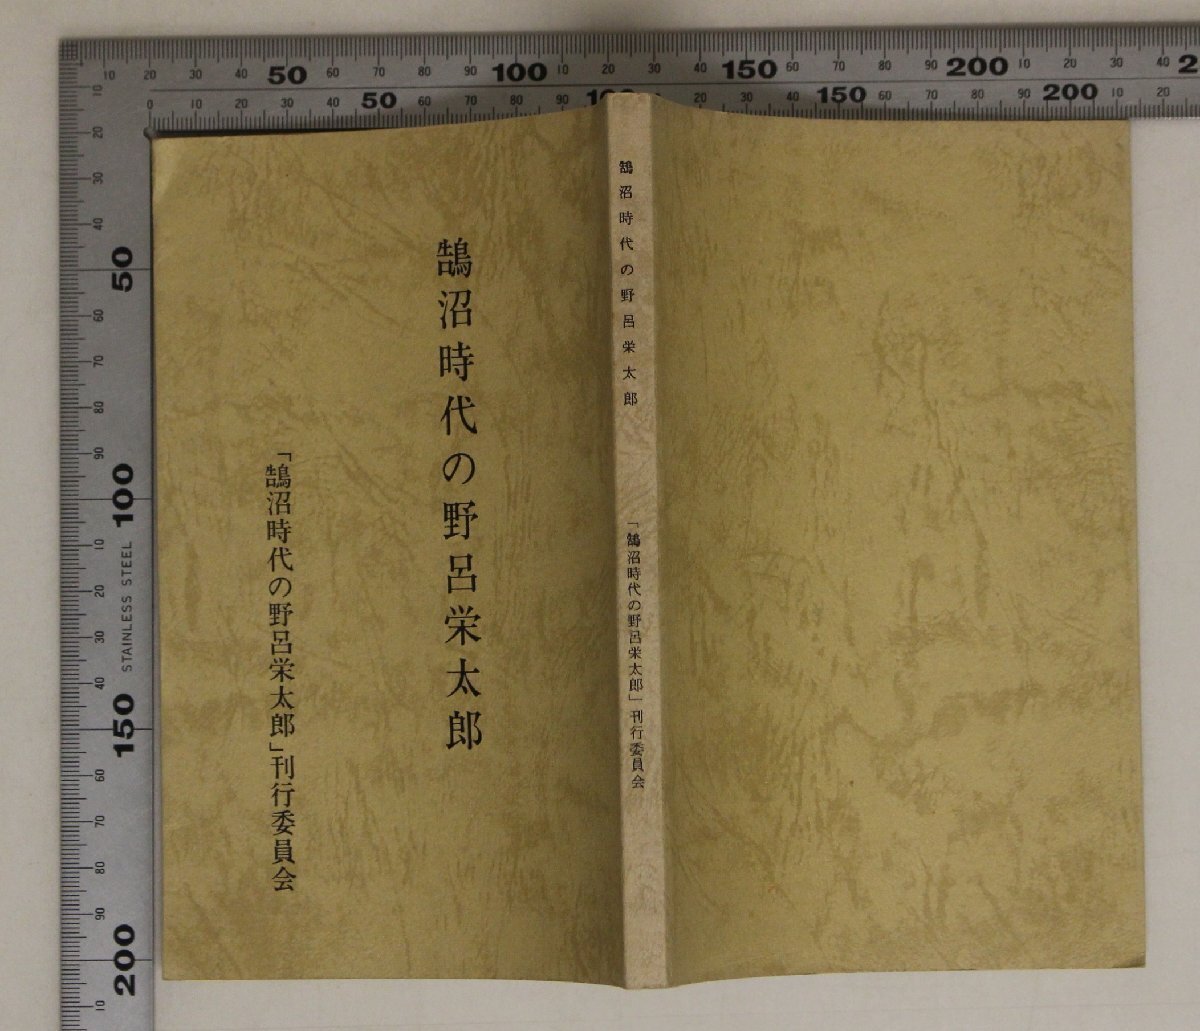 鵠沼時代の野呂栄太郎
「鵠沼時代の野呂栄太郎」刊行委員会
鵠沼時代の野呂栄太郎
「鵠沼時代の野呂栄太郎」刊行委員会
10 20 30 40 50 60 70 80 90 100 10 20 30 40 150 60 70 80 90 200 10 20 30 40 2
0 10 20 30 40 50 60 70 80 90 10 20 30 40 150 60 70 80 90 200 10 20
10 20 30 40 50 60 70 80 90 100 10 20 30 40 150 60 70 80 90 200 10
STAINLESS STEEL